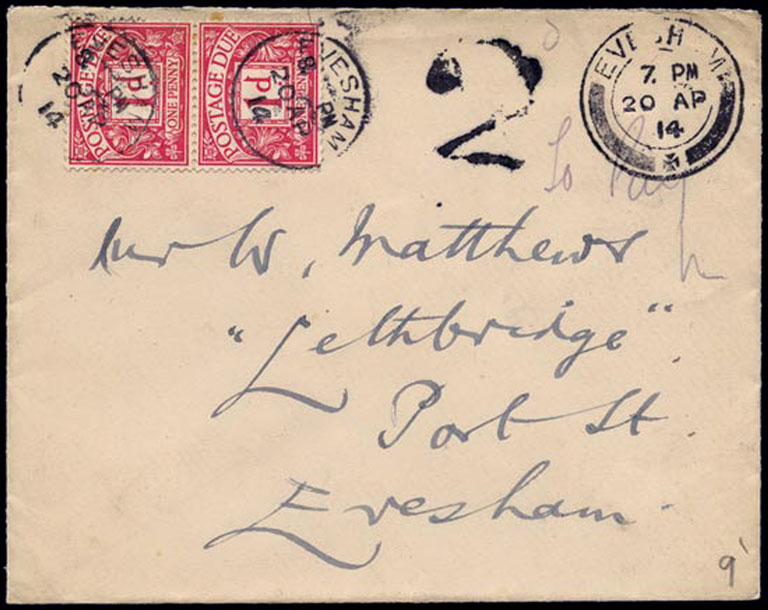 POSTAGE DUE
1D
ONE PENNY
POSTAGE DUE
1D
EVESHAM
PM
20 AP
14
2
EVESHAM
7 PM
20 AP
14
To Pay
Mr W, Matthews
"Lethbridge"
Port St.
Evesham
9